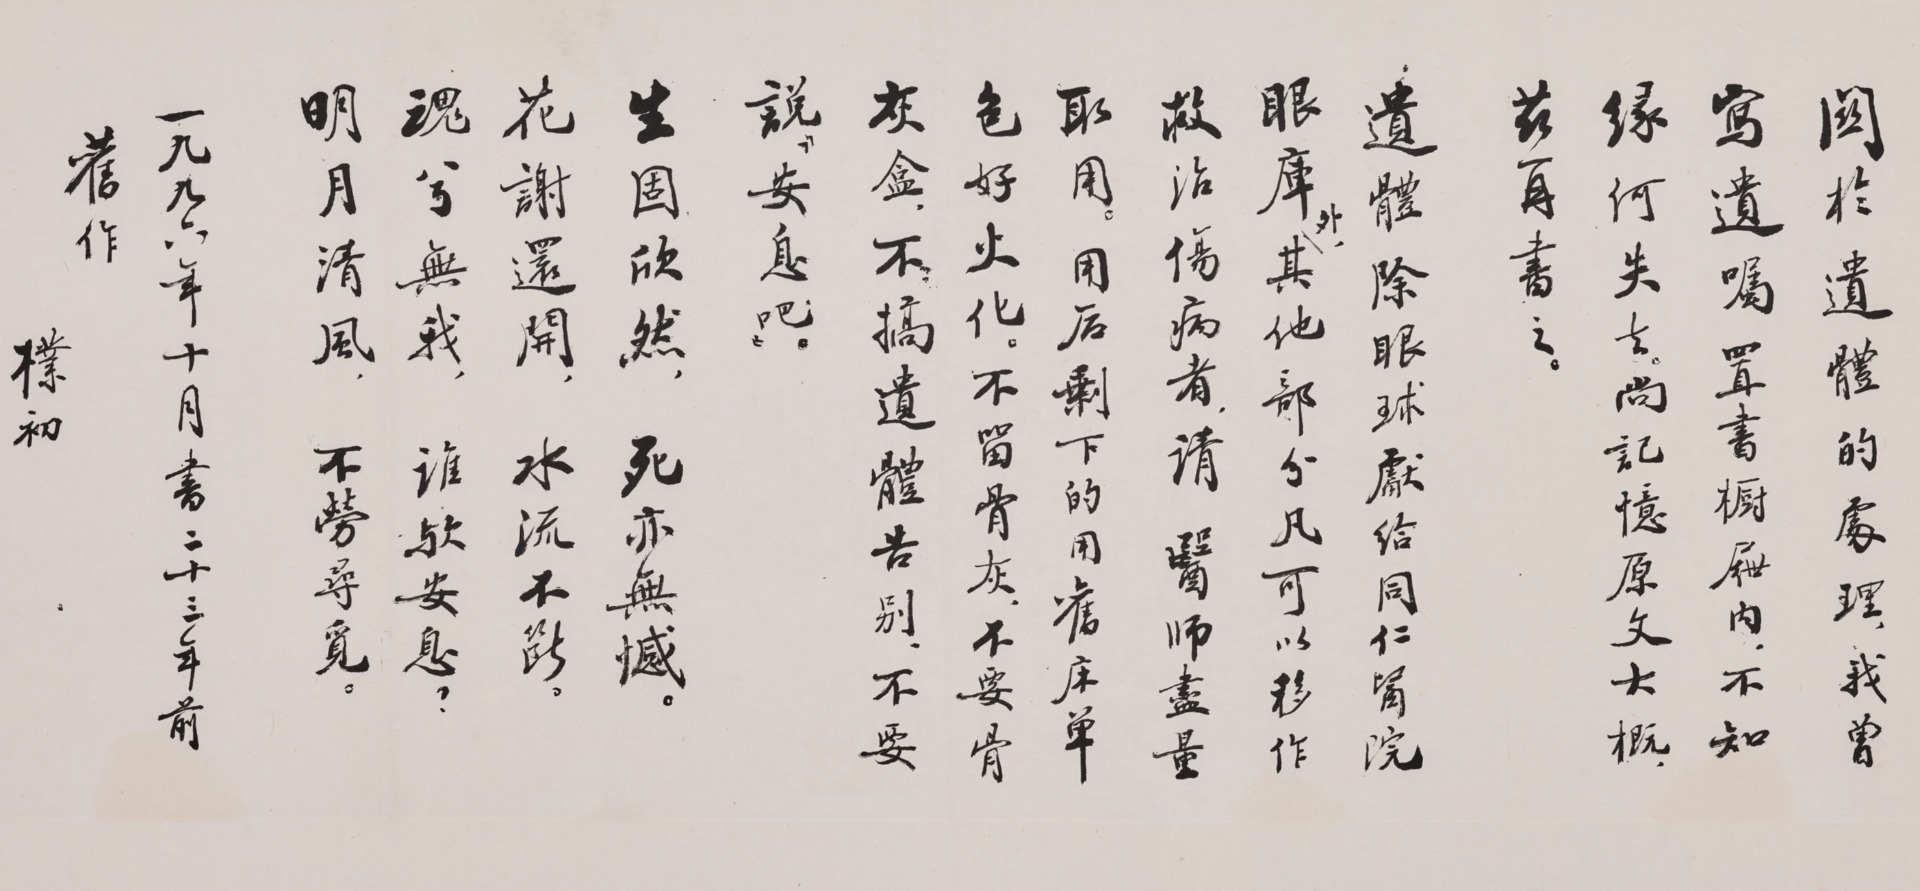 關於遺體的處理，我曾
寫遺囑置書櫥屜内，不知
緣何失去。尚記憶原文大概，
兹再書之。
遺體除眼球獻給同仁醫院
眼庫外，其他部分凡可以移作
救治傷病者，请醫师盡量
取用。用后剩下的用舊床单
包好火化。不留骨灰，不要骨
灰盒，不搞遺體告别，不要
説“安息吧”。
生固欣然，死亦無憾。
花謝還開，水流不斷。
魂兮無我，谁欤安息？
明月清風，不勞尋覓。
一九九六年十月書二十三年前
舊作
樸初